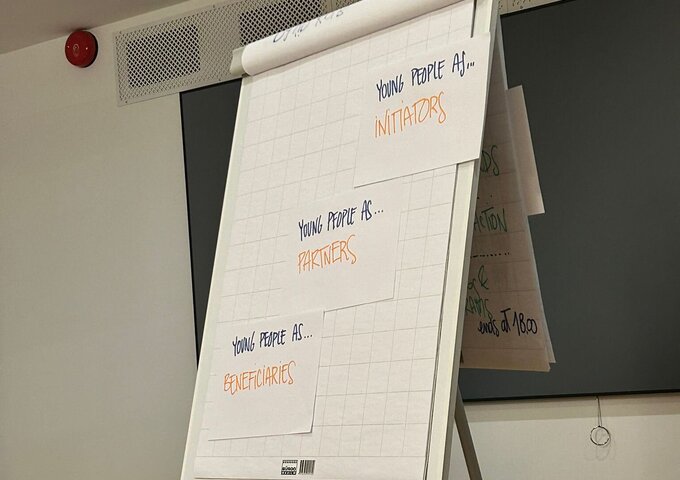 YOUNG PEOPLE AS...
INITIATORS
YOUNG PEOPLE AS...
PARTNERS
YOUNG PEOPLE AS...
BENEFICIARIES
ends at 18.00